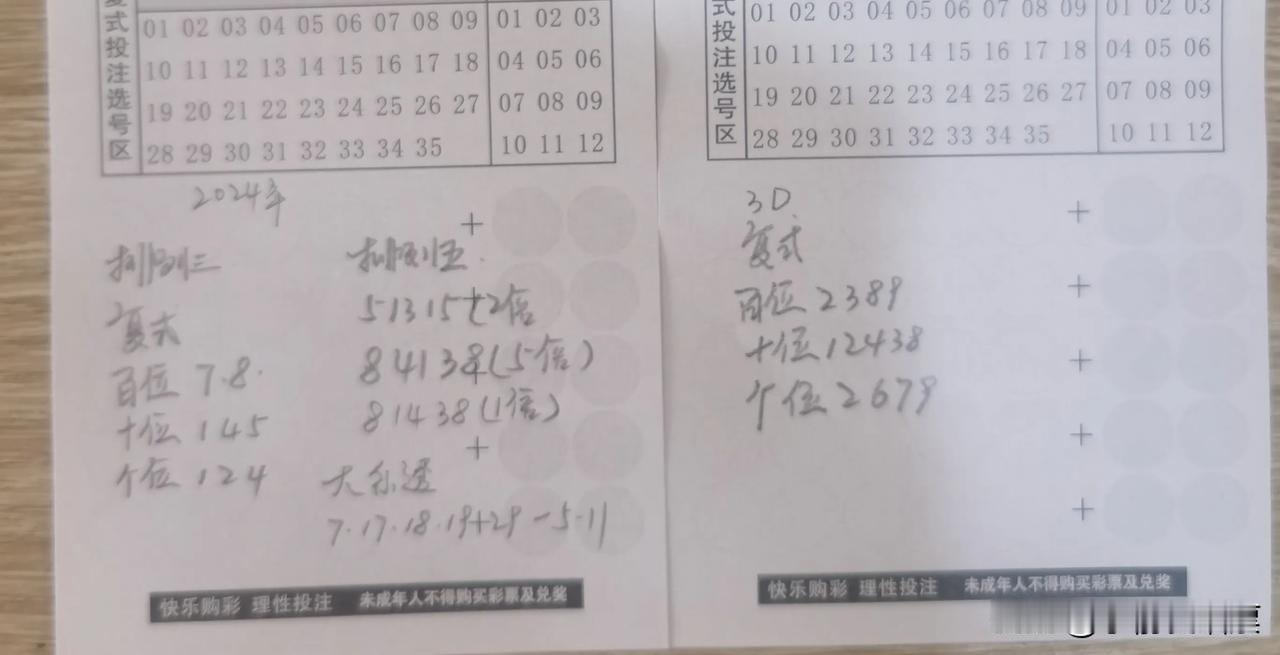 复式投注选号区
01 02 03 04 05 06 07 08 09 01 02 03
10 11 12 13 14 15 16 17 18 04 05 06
19 20 21 22 23 24 25 26 27 07 08 09
28 29 30 31 32 33 34 35 10 11 12
2024年
排列三
复式
百位 7.8.
十位 145
个位 124
+
排列五.
51315+2倍
84138(5倍)
81438(1倍)
+
大乐透
7.17.18.19+29-5.11
快乐购彩 理性投注 未成年人不得购买彩票及兑奖
式投注选号区
01 02 03 04 05 06 07 08 09 01 02 03
10 11 12 13 14 15 16 17 18 04 05 06
19 20 21 22 23 24 25 26 27 07 08 09
28 29 30 31 32 33 34 35 10 11 12
3D
复式
百位 2389
十位 12438
个位 2679
+
+
+
+
+
快乐购彩 理性投注 未成年人不得购买彩票及兑奖